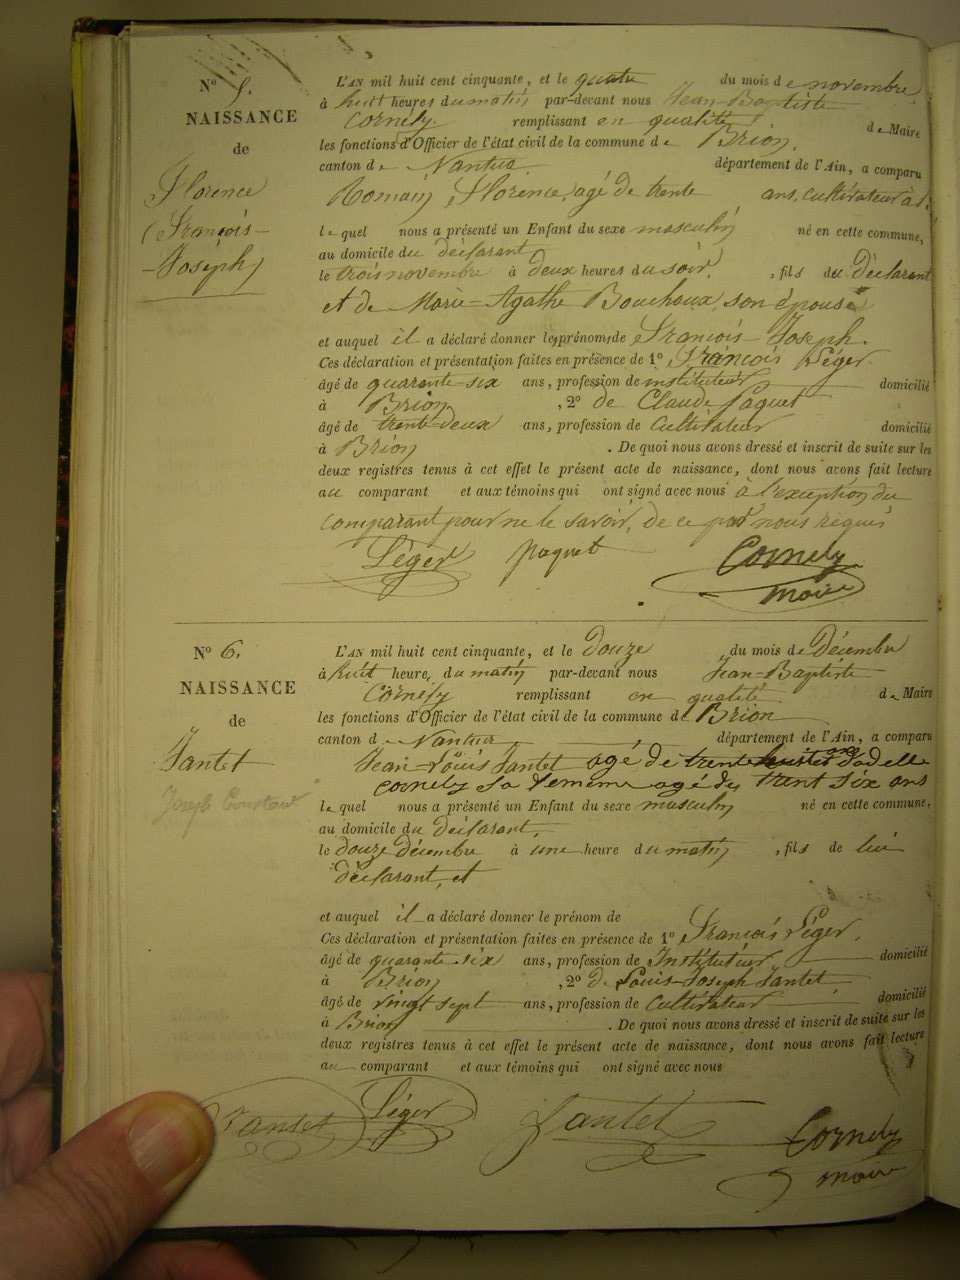 N° 5.
NAISSANCE
de
Florence
François-
-Joseph
L'AN mil huit cent cinquante, et le quatre du mois de novembre
à huit heures du matin par-devant nous Jean-Baptiste
Cornely. remplissant en qualité de Maire
les fonctions d'Officier de l'état civil de la commune de Brion.
canton de Nantua département de l'Ain, a comparu
Romain Florence, agé de trente ans, cultivateur à
lequel nous a présenté un Enfant du sexe masculin né en cette commune,
au domicile du déclarant
le trois novembre à deux heures du soir, fils du Déclarant
et de Marie-Agathe Bouchoux, son épouse
et auquel il a déclaré donner les prénoms de François-Joseph.
Ces déclaration et présentation faites en présence de 1° François Léger
âgé de quarante-six ans, profession de instituteur domicilié
à Brion, 2° de Claude Paquet
âgé de trente-deux ans, profession de Cultivateur domicilié
à Brion. De quoi nous avons dressé et inscrit de suite sur les
deux registres tenus à cet effet le présent acte de naissance, dont nous avons fait lecture
au comparant et aux témoins qui ont signé avec nous à l'exception du
comparant pour ne le savoir, de ce par nous requis
Léger paquet Cornely
maire
N° 6.
NAISSANCE
de
Jantet
Joseph Constant
L'AN mil huit cent cinquante, et le douze du mois de Décembre
à huit heures du matin par-devant nous Jean-Baptiste
Cornely remplissant en qualité de Maire
les fonctions d'Officier de l'état civil de la commune de Brion
canton de Nantua département de l'Ain, a comparu
Jean-Louis Jantet agé de trente huit ans
cornely sa femme agé de trent six ans
lequel nous a présenté un Enfant du sexe masculin né en cette commune,
au domicile du déclarant,
le douze décembre à une heure du matin, fils de lui
déclarant, et
et auquel il a déclaré donner le prénom de
Ces déclaration et présentation faites en présence de 1° François Léger,
âgé de quarante-six ans, profession de Instituteur domicilié
à Brion, 2° de Louis-Joseph Jantet
âgé de vingt sept ans, profession de Cultivateur domicilié
à Brion. De quoi nous avons dressé et inscrit de suite sur les
deux registres tenus à cet effet le présent acte de naissance, dont nous avons fait lecture
au comparant et aux témoins qui ont signé avec nous
Léger Jantet Cornely
maire